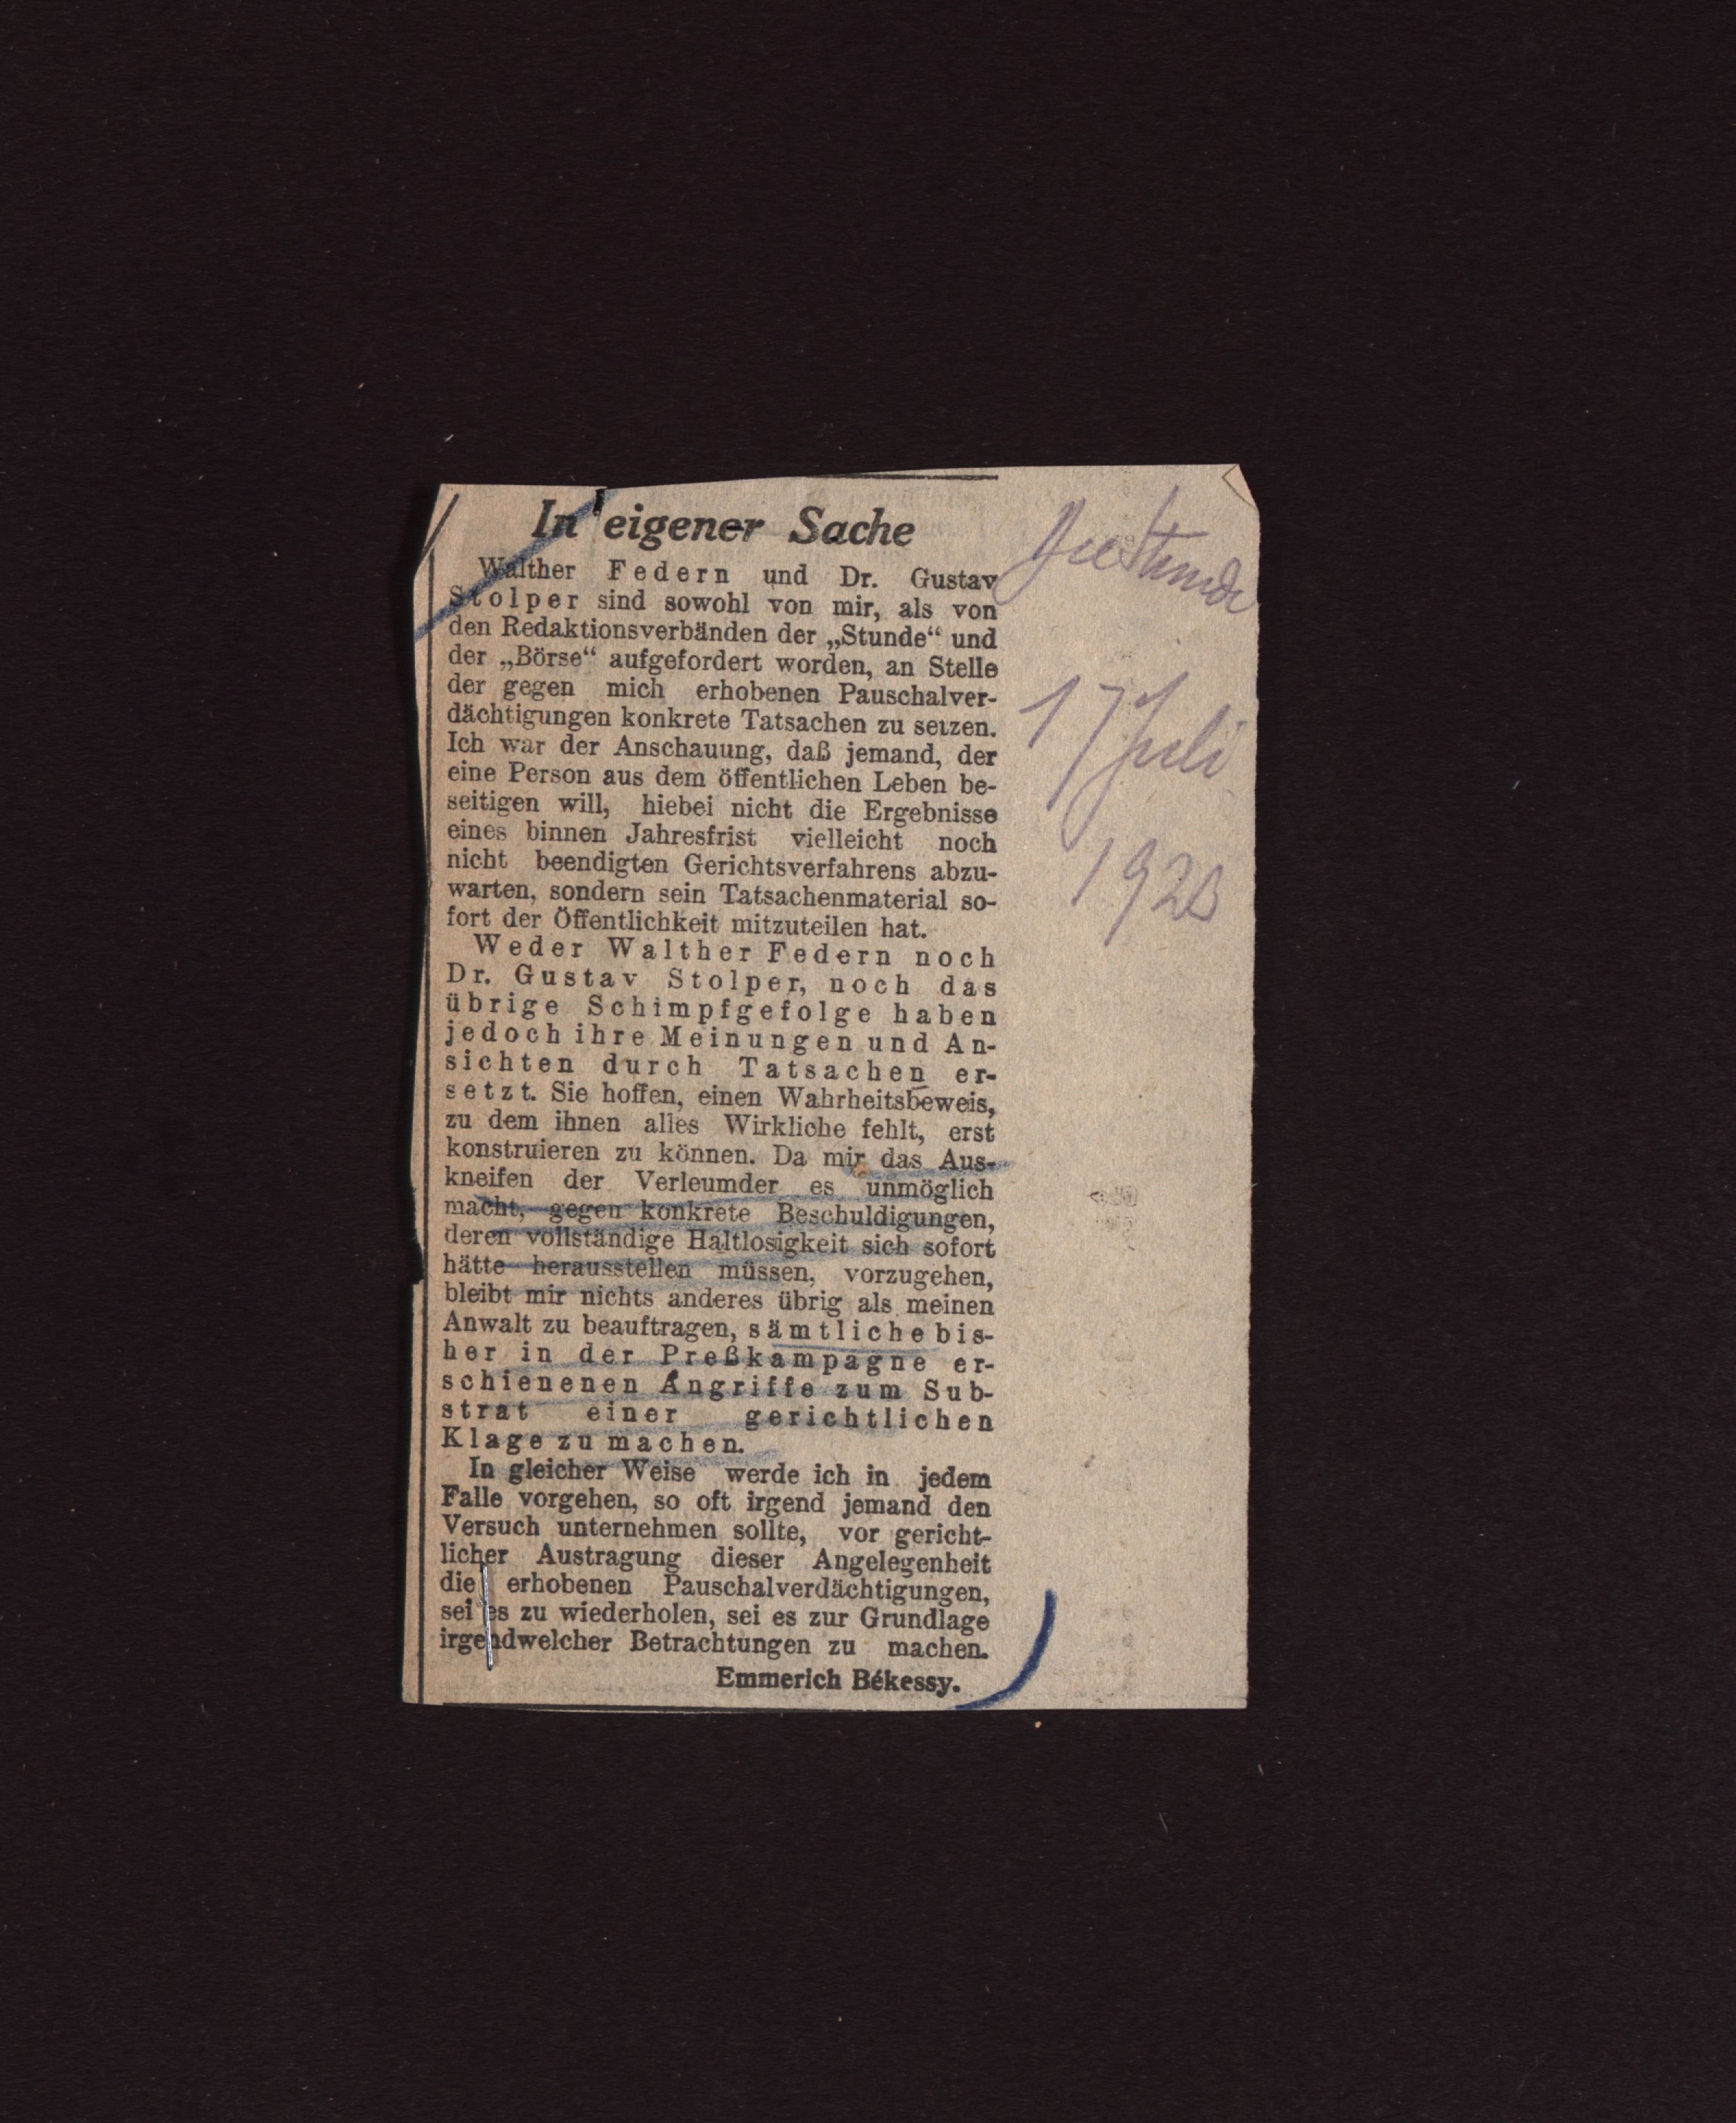 In eigener Sache
Walther Federn und Dr. Gustav
Stolper sind sowohl von mir, als von
den Redaktionsverbänden der „Stunde“ und
der „Börse“ aufgefordert worden, an Stelle
der gegen mich erhobenen Pauschalver-
dächtigungen konkrete Tatsachen zu setzen.
Ich war der Anschauung, daß jemand, der
eine Person aus dem öffentlichen Leben be-
seitigen will, hiebei nicht die Ergebnisse
eines binnen Jahresfrist vielleicht noch
nicht beendigten Gerichtsverfahrens abzu-
warten, sondern sein Tatsachenmaterial so-
fort der Öffentlichkeit mitzuteilen hat.
Weder Walther Federn noch
Dr. Gustav Stolper, noch das
übrige Schimpfgefolge haben
jedoch ihre Meinungen und An-
sichten durch Tatsachen er-
setzt. Sie hoffen, einen Wahrheitsbeweis,
zu dem ihnen alles Wirkliche fehlt, erst
konstruieren zu können. Da mir das Aus-
kneifen der Verleumder es unmöglich
macht, gegen konkrete Beschuldigungen,
deren vollständige Haltlosigkeit sich sofort
hätte herausstellen müssen, vorzugehen,
bleibt mir nichts anderes übrig als meinen
Anwalt zu beauftragen, sämtliche bis-
her in der Preßkampagne er-
schienenen Angriffe zum Sub-
strat einer gerichtlichen
Klage zu machen.
In gleicher Weise werde ich in jedem
Falle vorgehen, so oft irgend jemand den
Versuch unternehmen sollte, vor gericht-
licher Austragung dieser Angelegenheit
die erhobenen Pauschalverdächtigungen,
sei es zu wiederholen, sei es zur Grundlage
irgendwelcher Betrachtungen zu machen.
Emmerich Békessy.
Die Stunde
17 Juli